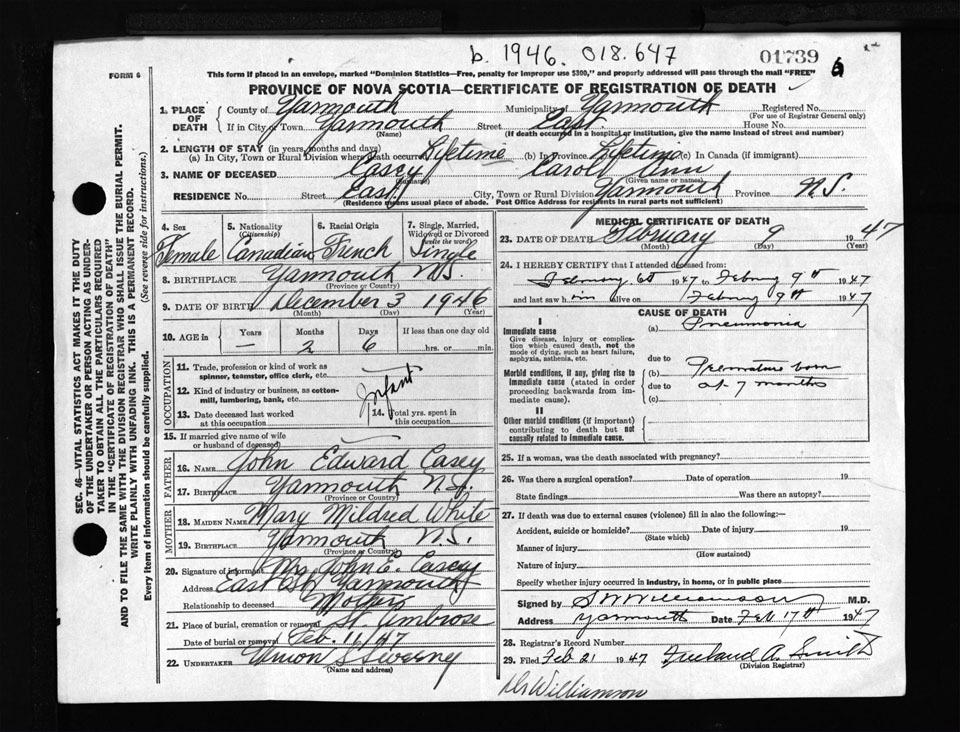 b. 1946. 018.647
01739 6
FORM 6
This form if placed in an envelope, marked "Dominion Statistics—Free, penalty for improper use $300," and properly addressed will pass through the mail "FREE"
PROVINCE OF NOVA SCOTIA—CERTIFICATE OF REGISTRATION OF DEATH
SEC. 46—VITAL STATISTICS ACT MAKES IT THE DUTY
OF THE UNDERTAKER OR PERSON ACTING AS UNDER-
TAKER TO OBTAIN ALL THE PARTICULARS REQUIRED
IN THE "CERTIFICATE OF REGISTRATION OF DEATH"
AND TO FILE THE SAME WITH THE DIVISION REGISTRAR WHO SHALL ISSUE THE BURIAL PERMIT.
WRITE PLAINLY WITH UNFADING INK. THIS IS A PERMANENT RECORD.
Every item of information should be carefully supplied. (See reverse side for instructions.)
1. PLACE OF DEATH
County of Yarmouth Municipality of Yarmouth Registered No.
(For use of Registrar General only)
If in City or Town Yarmouth Street East. House No.
(If death occurred in a hospital or institution, give the name instead of street and number)
2. LENGTH OF STAY (in years, months and days)
(a) In City, Town or Rural Division where death occurred Lifetime (b) In Province Lifetime (c) In Canada (if immigrant)
3. NAME OF DECEASED Casey Carol Ann
(Surname) (Given name or names)
RESIDENCE No. Street East City, Town or Rural Division Yarmouth Province N.S.
(Residence means usual place of abode. Post Office Address for residents in rural parts not sufficient)
4. Sex 5. Nationality (Citizenship) 6. Racial Origin 7. Single, Married, Widowed or Divorced (write the word)
Female Canadian French Single
8. BIRTHPLACE Yarmouth N.S.
(Province or Country)
9. DATE OF BIRTH December 3 1946
(Month) (Day) (Year)
10. AGE in Years Months Days If less than one day old
— 2 6 hrs. or min.
OCCUPATION
11. Trade, profession or kind of work as spinner, teamster, office clerk, etc.
12. Kind of industry or business, as cotton-mill, lumbering, bank, etc.
Infant
13. Date deceased last worked at this occupation
14. Total yrs. spent in this occupation
15. If married give name of wife or husband of deceased
FATHER
16. NAME John Edward Casey
17. BIRTHPLACE Yarmouth N.S.
(Province or Country)
MOTHER
18. MAIDEN NAME Mary Mildred White
19. BIRTHPLACE Yarmouth N.S.
(Province or Country)
20. Signature of informant Mrs. John E. Casey
Address East St Yarmouth
Relationship to deceased Mother
21. Place of burial, cremation or removal St. Ambrose
Date of burial or removal Feb. 11/47
22. UNDERTAKER Vinson S Sweeny
(Name and address)
MEDICAL CERTIFICATE OF DEATH
23. DATE OF DEATH February 9 1947
(Month) (Day) (Year)
24. I HEREBY CERTIFY that I attended deceased from
February 6th 1947 to February 9th 1947
and last saw him alive on February 9th 1947
CAUSE OF DEATH
I
Immediate cause
Give disease, injury or complication which caused death, not the mode of dying, such as heart failure, asphyxia, asthenia, etc.
(a) Pneumonia
due to
Morbid conditions, if any, giving rise to immediate cause (stated in order proceeding backwards from immediate cause).
(b) Premature born
due to at 7 months
(c)
II
Other morbid conditions (if important) contributing to death but not causally related to immediate cause.
25. If a woman, was the death associated with pregnancy?
26. Was there a surgical operation? Date of operation 19
State findings Was there an autopsy?
27. If death was due to external causes (violence) fill in also the following:—
Accident, suicide or homicide? Date of injury 19
(State which)
Manner of injury
(How sustained)
Nature of injury
Specify whether injury occurred in industry, in home, or in public place
Signed by S W Williamson M.D.
Address Yarmouth Date Feb 17th 1947
28. Registrar's Record Number
29. Filed Feb 21 1947 Freeland A. Smith
(Division Registrar)
Dr Williamson